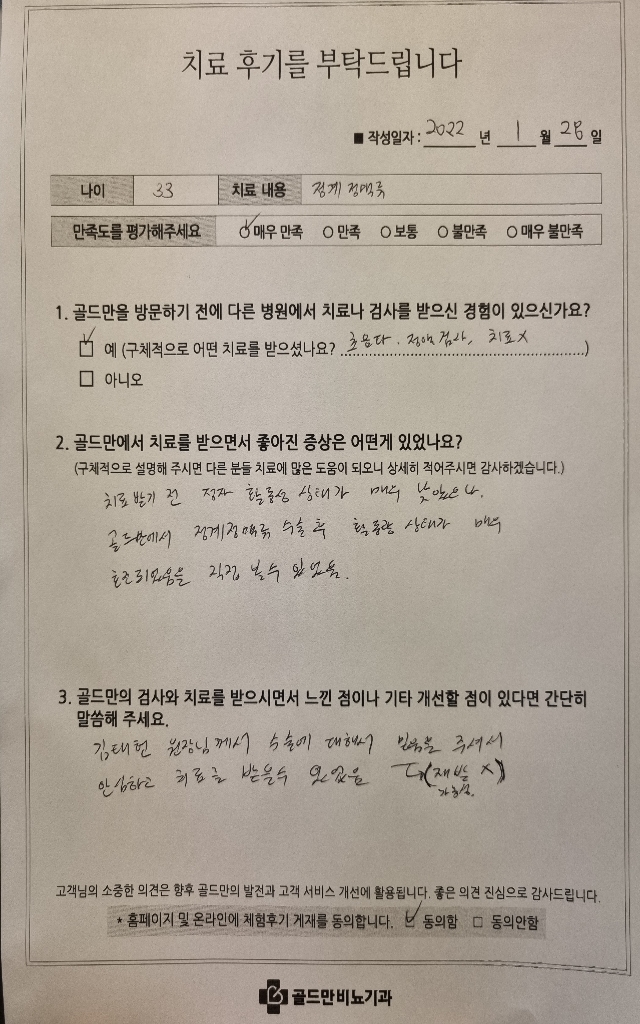 치료 후기를 부탁드립니다
■ 작성일자 : 2022 년 1 월 28 일
나이 33 치료 내용 정계정맥류
만족도를 평가해주세요 매우 만족 만족 보통 불만족 매우 불만족
1. 골드만을 방문하기 전에 다른 병원에서 치료나 검사를 받으신 경험이 있으신가요?
예 (구체적으로 어떤 치료를 받으셨나요? 초음파. 정액검사, 치료X )
아니오
2. 골드만에서 치료를 받으면서 좋아진 증상은 어떤게 있었나요?
(구체적으로 설명해 주시면 다른 분들 치료에 많은 도움이 되오니 상세히 적어주시면 감사하겠습니다.)
치료받기 전 정자 활동성 상태가 매우 낮았으나,
골드만에서 정계정맥류 수술 후 활동량 상태가 매우
호전되었음을 직접 볼 수 있었음.
3. 골드만의 검사와 치료를 받으시면서 느낀 점이나 기타 개선할 점이 있다면 간단히
말씀해 주세요.
김태헌 원장님께서 수술에 대해서 믿음을 주셔서
안심하고 치료를 받을 수 있었음 (재발 X)
고객님의 소중한 의견은 향후 골드만의 발전과 고객 서비스 개선에 활용됩니다. 좋은 의견 진심으로 감사드립니다.
* 홈페이지 및 온라인에 체험후기 게재를 동의합니다. 동의함 동의안함
골드만비뇨기과